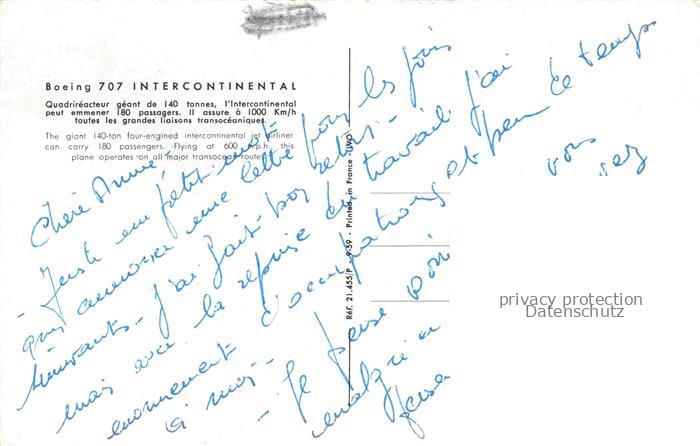 Boeing 707 INTERCONTINENTAL
Quadriréacteur géant de 140 tonnes, l'Intercontinental
peut emmener 180 passagers. Il assure à 1000 Km/h
toutes les grandes liaisons transocéaniques.
The giant 140-ton four-engined intercontinental jet airliner
can carry 180 passengers. Flying at 600 m.p.h., this
plane operates on all major transocean routes.
Chère Annie
- Juste un petit mot
qui annonce une lettre pour les jours
suivants - j'ai fait bon retour -
mais avec la reprise du travail j'ai
énormément d'occupations et peu de temps
à moi - vous
- Je pense
malgré
Réf. 21.455/P - 9-59 - Printed in France
privacy protection
Datenschutz